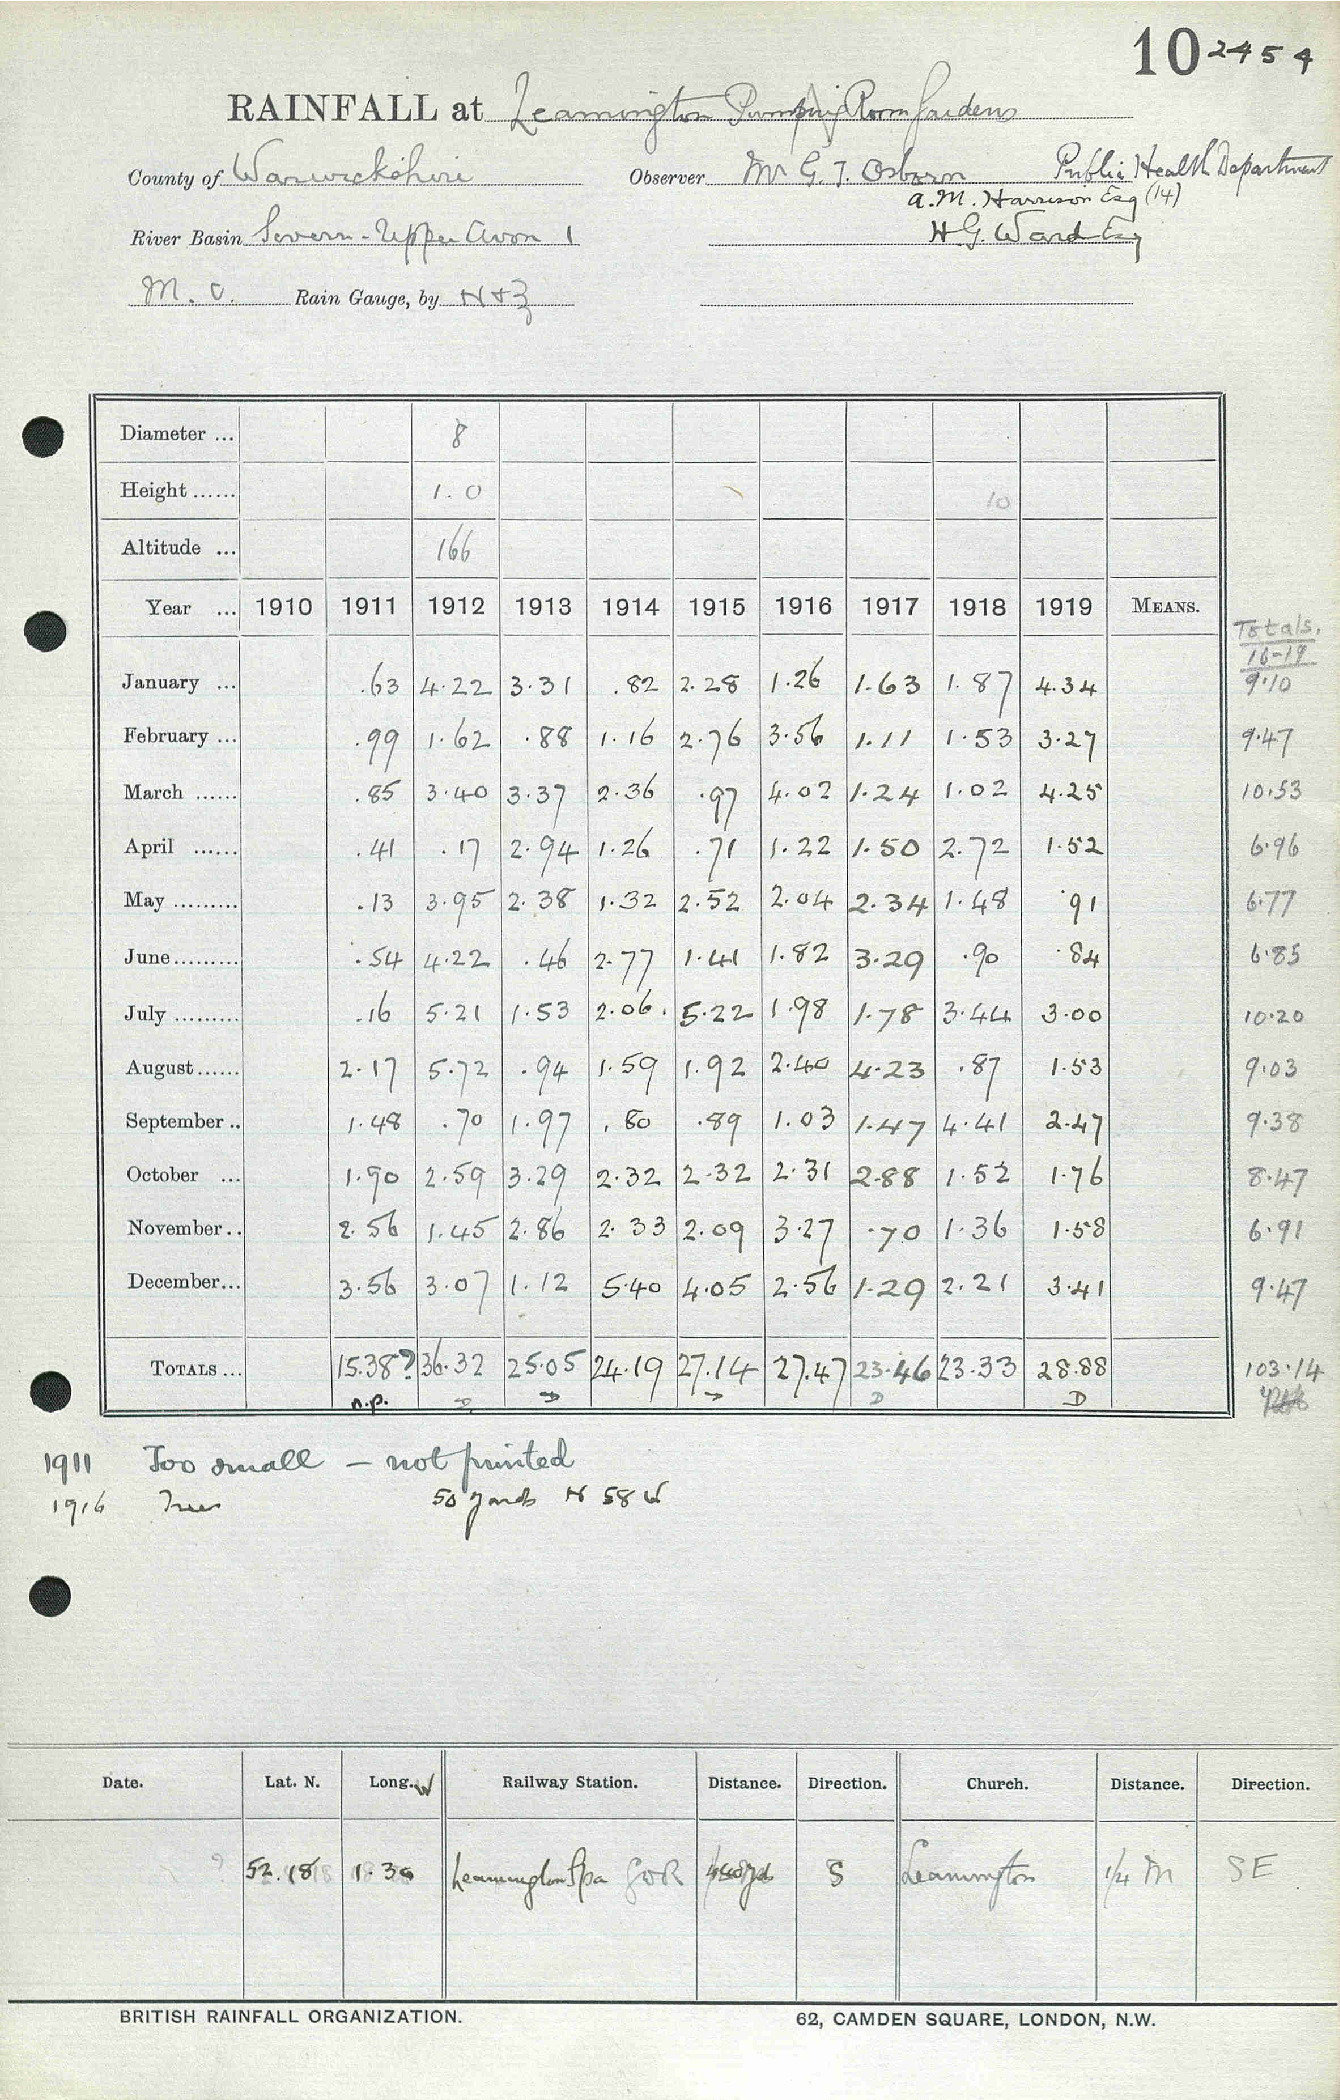 10 2454
RAINFALL at Leamington Pump Room Gardens
County of Warwickshire Observer Mr G. T. Osborn Public Health Department
A. M. Harrison Esq (14)
River Basin Severn - Upper Avon 1 H G. Ward Esq
M. O. Rain Gauge, by N & Z
Diameter ... 8
Height ...... 1.0 10
Altitude ... 166
Year ... 1910 1911 1912 1913 1914 1915 1916 1917 1918 1919 MEANS. Totals. 16-19
January ... .63 4.22 3.31 .82 2.28 1.26 1.63 1.87 4.34 9.10
February ... .99 1.62 .88 1.16 2.76 3.56 1.11 1.53 3.27 9.47
March ...... .85 3.40 3.37 2.36 .97 4.02 1.24 1.02 4.25 10.53
April ...... .41 .17 2.94 1.26 .71 1.22 1.50 2.72 1.52 6.96
May ......... .13 3.95 2.38 1.32 2.52 2.04 2.34 1.48 .91 6.77
June......... .54 4.22 .46 2.77 1.41 1.82 3.29 .90 .84 6.85
July ......... .16 5.21 1.53 2.06. 5.22 1.98 1.78 3.44 3.00 10.20
August...... 2.17 5.72 .94 1.59 1.92 2.40 4.23 .87 1.53 9.03
September .. 1.48 .70 1.97 .80 .89 1.03 1.47 4.41 2.47 9.38
October ... 1.90 2.59 3.29 2.32 2.32 2.31 2.88 1.52 1.76 8.47
November.. 2.56 1.45 2.86 2.33 2.09 3.27 .70 1.36 1.58 6.91
December... 3.56 3.07 1.12 5.40 4.05 2.56 1.29 2.21 3.41 9.47
TOTALS ... 15.38? 36.32 25.05 24.19 27.14 27.47 23.46 23.33 28.88 103.14
n.p. D D D
1911 Too small - not printed
1916 Trees 50 yards N 58 W
Date. Lat. N. Long. W Railway Station. Distance. Direction. Church. Distance. Direction.
? 52.18 1.30 Leamington Spa GWR S Leamington 1/4 M SE
BRITISH RAINFALL ORGANIZATION. 62, CAMDEN SQUARE, LONDON, N.W.